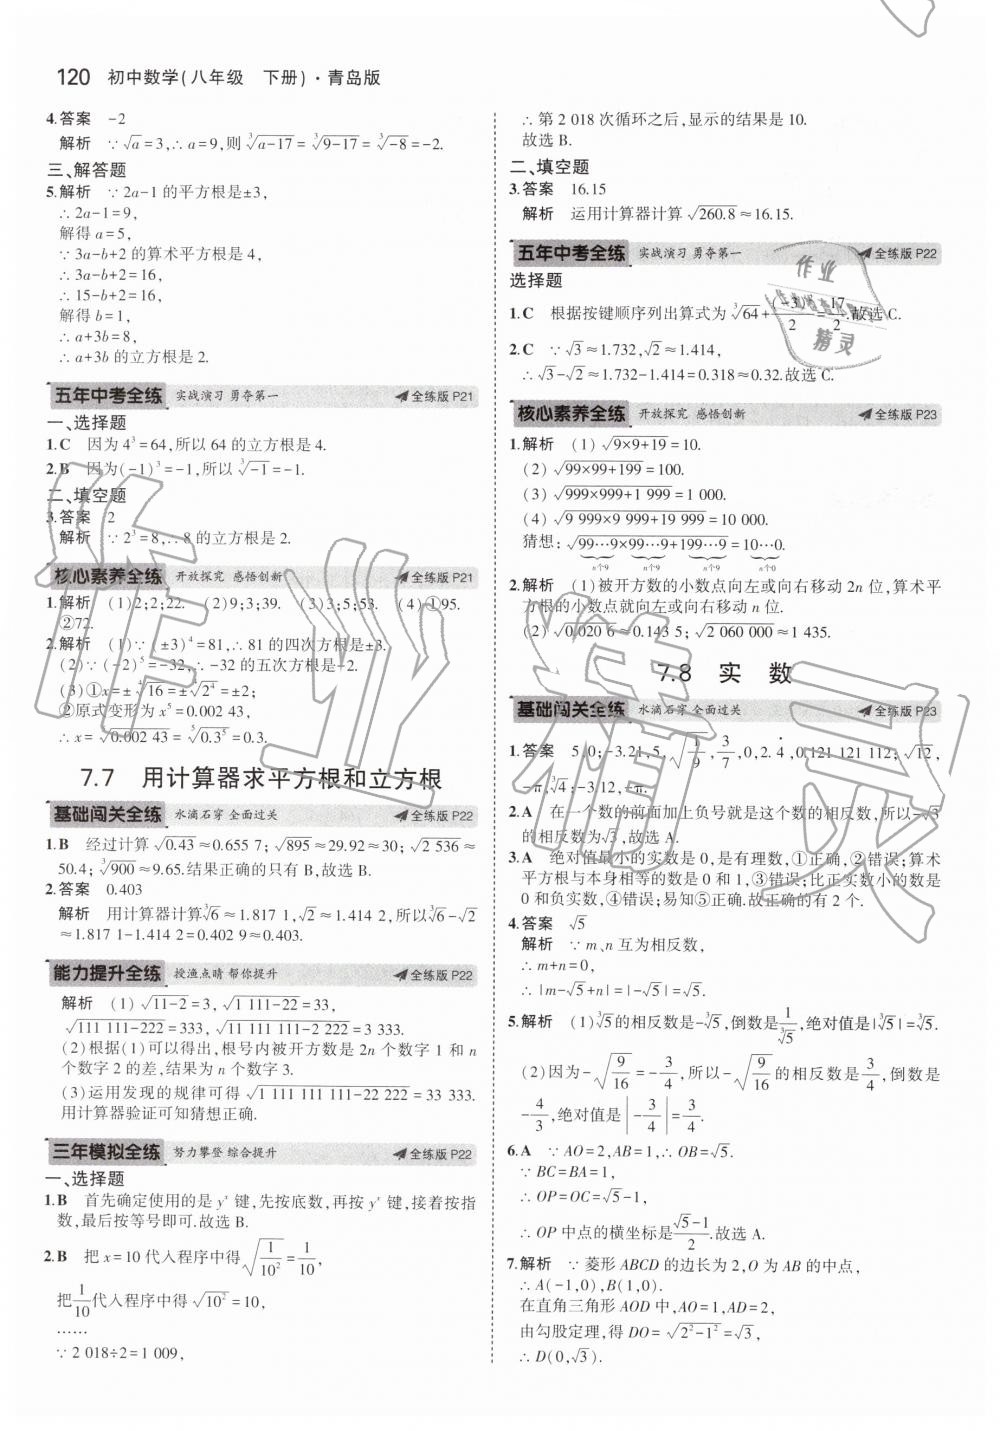 120 初中数学(八年级 下册)·青岛版
4.答案 -2
解析 ∵√a=3,∴a=9,则∛(a-17)=∛(9-17)=∛(-8)=-2.
三、解答题
5.解析 ∵2a-1的平方根是±3,
∴2a-1=9,
解得a=5,
∵3a-b+2的算术平方根是4,
∴3a-b+2=16,
∴15-b+2=16,
解得b=1,
∴a+3b=8,
∴a+3b的立方根是2.
五年中考全练 实战演习 勇夺第一 全练版P21
一、选择题
1.C 因为4³=64,所以64的立方根是4.
2.B 因为(-1)³=-1,所以∛(-1)=-1.
二、填空题
3.答案 2
解析 ∵2³=8,∴8的立方根是2.
核心素养全练 开放探究 感悟创新 全练版P21
1.解析 (1)2;2;22. (2)9;3;39. (3)3;5;53. (4)①95.
②72.
2.解析 (1)∵(±3)⁴=81,∴81的四次方根是±3.
(2)∵(-2)⁵=-32,∴-32的五次方根是-2.
(3)①x=±⁴√16=±⁴√(2⁴)=±2;
②原式变形为x⁵=0.002 43,
∴x=⁵√(0.002 43)=⁵√(0.3⁵)=0.3.
7.7 用计算器求平方根和立方根
基础闯关全练 水滴石穿 全面过关 全练版P22
1.B 经过计算√0.43≈0.655 7;√895≈29.92≈30;√(2 536)≈
50.4;∛900≈9.65.结果正确的只有B,故选B.
2.答案 0.403
解析 用计算器计算∛6≈1.817 1,√2≈1.414 2,所以∛6-√2
≈1.817 1-1.414 2=0.402 9≈0.403.
能力提升全练 授渔点睛 帮你提升 全练版P22
解析 (1)√(11-2)=3,√(1 111-22)=33,
√(111 111-222)=333,√(11 111 111-2 222)=3 333.
(2)根据(1)可以得出,根号内被开方数是2n个数字1和n
个数字2的差,结果为n个数字3.
(3)运用发现的规律可得√(1 111 111 111-22 222)=33 333.
用计算器验证可知猜想正确.
三年模拟全练 努力攀登 综合提升 全练版P22
一、选择题
1.B 首先确定使用的是yˣ键,先按底数,再按yˣ键,接着按指
数,最后按等号即可.故选B.
2.B 把x=10代入程序中得√(1/10²)=1/10,
把1/10代入程序中得√(10²)=10,
……
∵2 018÷2=1 009,
∴第2 018次循环之后,显示的结果是10.
故选B.
二、填空题
3.答案 16.15
解析 运用计算器计算√260.8≈16.15.
五年中考全练 实战演习 勇夺第一 全练版P22
选择题
1.C 根据按键顺序列出算式为∛64+(-3)²/2=17/2.故选C.
2.C ∵√3≈1.732,√2≈1.414,
∴√3-√2≈1.732-1.414=0.318≈0.32.故选C.
核心素养全练 开放探究 感悟创新 全练版P23
1.解析 (1)√(9×9+19)=10.
(2)√(99×99+199)=100.
(3)√(999×999+1 999)=1 000.
(4)√(9 999×9 999+19 999)=10 000.
猜想:√(99…9×99…9+199…9)=10…0.
n个9 n个9 n个9 n个0
2.解析 (1)被开方数的小数点向左或向右移动2n位,算术平
方根的小数点就向左或向右移动n位.
(2)√(0.020 6)≈0.143 5;√(2 060 000)≈1 435.
7.8 实 数
基础闯关全练 水滴石穿 全面过关 全练版P23
1.答案 5,0;-3.21,5,√(1/9),3/7,0,2.4̇,0.121 121 112;√12,
-π,∛4;-3.12,-π
2.A 在一个数的前面加上负号就是这个数的相反数,所以-√3
的相反数为√3,故选A.
3.A 绝对值最小的实数是0,是有理数,①正确,②错误;算术
平方根与本身相等的数是0和1,③错误;比正实数小的数是
0和负实数,④错误;易知⑤正确.故正确的有2个.
4.答案 √5
解析 ∵m、n互为相反数,
∴m+n=0,
∴|m-√5+n|=|-√5|=√5.
5.解析 (1)∛5的相反数是-∛5,倒数是1/∛5,绝对值是|∛5|=∛5.
(2)因为-√(9/16)=-3/4,所以-√(9/16)的相反数是3/4,倒数是
-4/3,绝对值是|-3/4|=3/4.
6.A ∵AO=2,AB=1,∴OB=√5.
∵BC=BA=1,
∴OP=OC=√5-1,
∴OP中点的横坐标是(√5-1)/2.故选A.
7.解析 ∵菱形ABCD的边长为2,O为AB的中点,
∴A(-1,0),B(1,0).
在直角三角形AOD中,AO=1,AD=2,
由勾股定理,得DO=√(2²-1²)=√3,
∴D(0,√3).
作业精灵